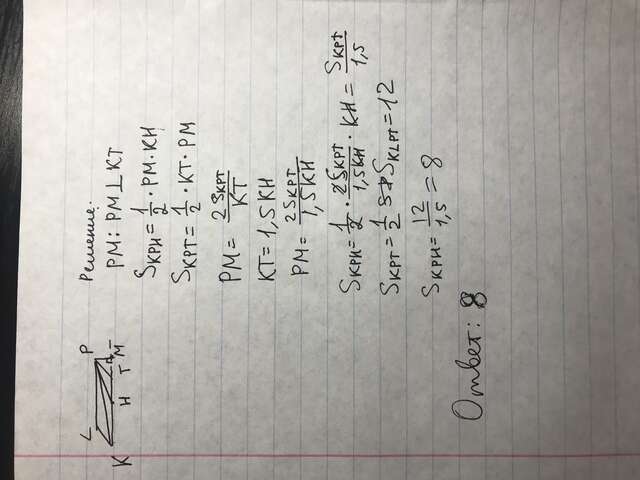 L P
K H T M
Решение.
PM: PM⊥KT
S_KPH = 1/2 · PM · KH
S_KPT = 1/2 · KT · PM
PM = 2S_KPT / KT
KT = 1,5KH
PM = 2S_KPT / 1,5KH
S_KPH = 1/2 · 2S_KPT / 1,5KH · KH = S_KPT / 1,5
S_KPT = 1/2 S_KLPT = 12
S_KPH = 12 / 1,5 = 8
Ответ: 8